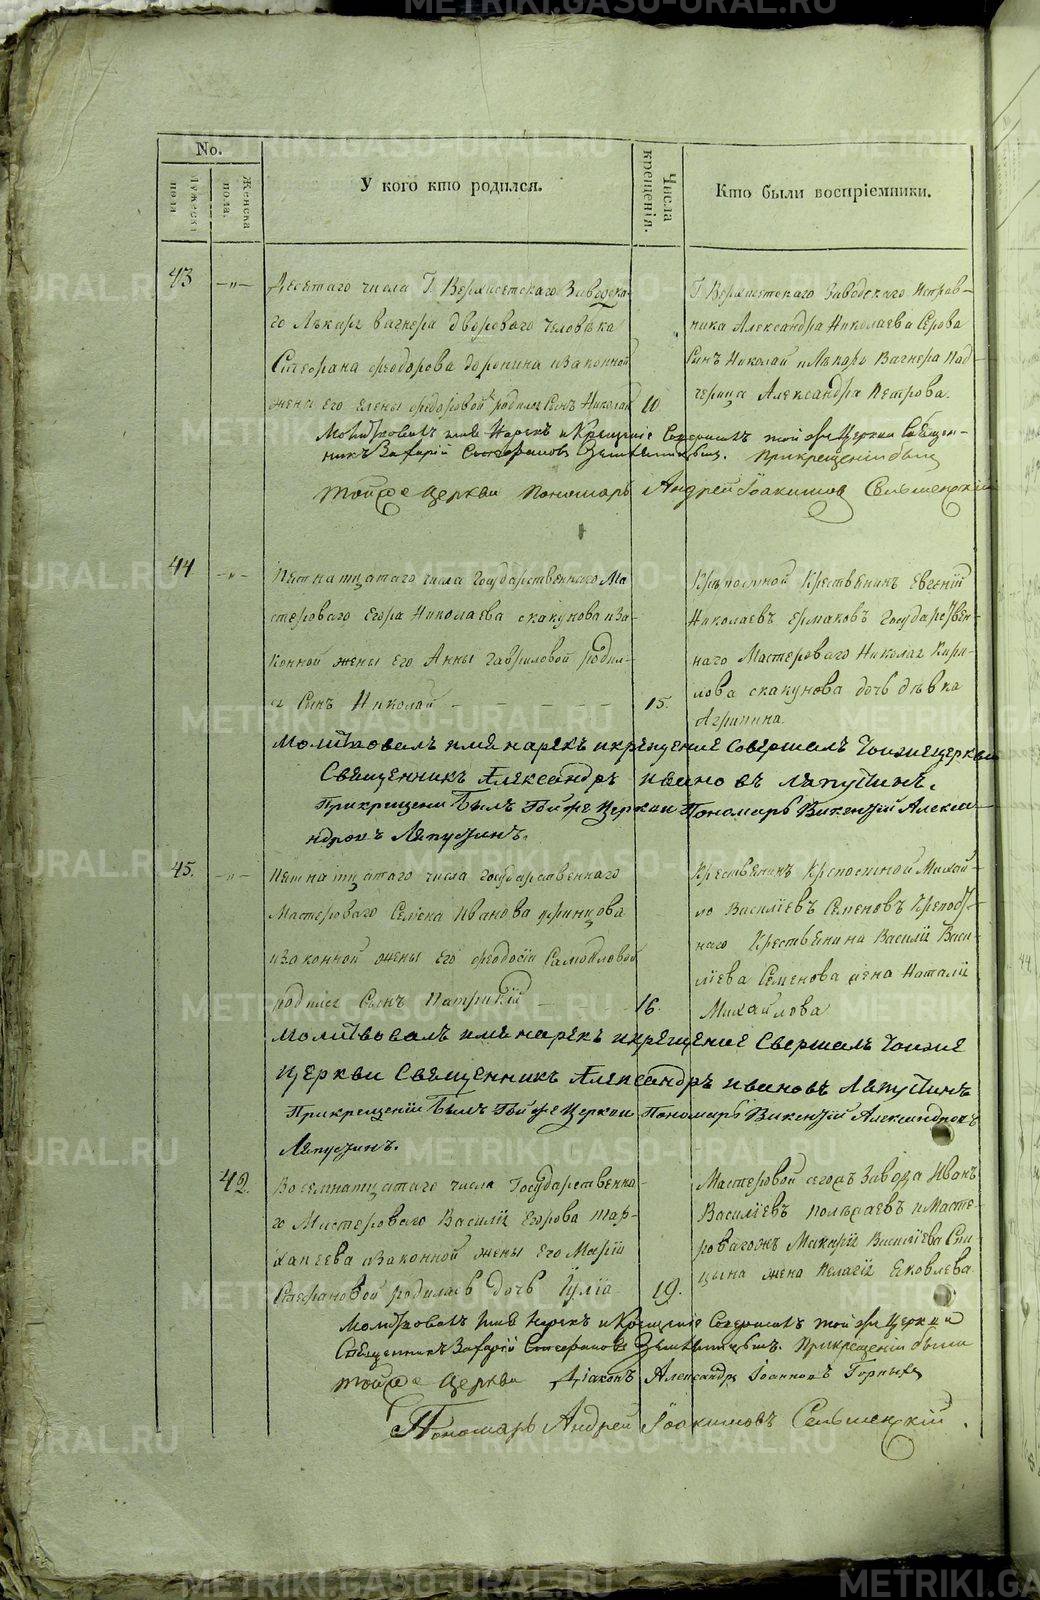 METRIKI.GASO-URAL.RU
No.
Мужеска пола
Женска пола.
У кого кто родился.
Числа крещенія.
Кто были воспріемники.
43
Десятаго числа Г. Верхисетскаго Заводска-
го Лѣкаря Вагнера двороваго человѣка
Стефана Феодорова Доронина и Законной
жены его Елены Федоровой родился Сынъ Николай
10
Г. Верхисетскаго Заводскаго Исправ-
ника Александра Николаева Серова
Сынъ Николай и Лѣкаря Вагнера Пад-
черица Александра Петрова.
Молитвовалъ имя Нарекъ и Крещеніе Совершилъ той же Церкви Священ-
никъ Захарій Стефановъ
При крещеніи былъ
тойже Церкви Пономарь Андрей Іоакимовъ
44
Пятнатцатаго числа Государственнаго Ма-
стероваго Егора Николаева Скакунова и За-
конной жены его Анны Гавриловой родил-
ся Сынъ Николай
15.
Крѣпосной Крестьянинъ Евгеній
Николаевъ Ермаковъ Государствен-
наго Мастероваго Николая Кири-
лова Скакунова дочь дѣвка
Агрипина.
Молитвовалъ имя нарекъ и крещение Совершалъ Тоижецеркви
Священникъ Александръ Ивановъ Ляпустинъ.
При крещени былъ Тойже Церкви Пономарь Викентій Алекса-
ндровъ Ляпустинъ.
45.
Пятнатцатаго числа Государственнаго
Мастероваго Семена Иванова Фринцова
и Законной жены его Феодосіи Самойловой
родился Сынъ Патрикій
16.
Крестьянинъ Крепостной Михай-
ло Василіевъ Семеновъ Крепост-
наго Крестьянина Василія Васи-
ліева Семенова жена Наталія
Михайлова
Молитвовалъ имя нарекъ и крещение Свершалъ Тоиже
Церкви Священникъ Александръ Ивановъ Ляпустинъ
При крещеніи былъ Тойже Церкви Пономарь Викентій Александровъ
Ляпустинъ.
42.
Восемнатцатаго числа Государственна-
го Мастероваго Василія Егорова Тар-
ханеева и Законной жены его Маріи
Стефановой родилась дочь Іулія
19.
Мастеровой сегожъ Завода Иванъ
Василіевъ и Масте-
ровагожъ Макарія Василіева Спи-
цына жена Пелагія Яковлева
Молитвовалъ Имя Нарекъ и Крещеніе Совершилъ той же Церкви
Священникъ Захарій Стефановъ
При крещеніи были
тойже Церкви Діаконъ Александръ Іоанновъ Горныхъ
Пономарь Андрей Іоакимовъ